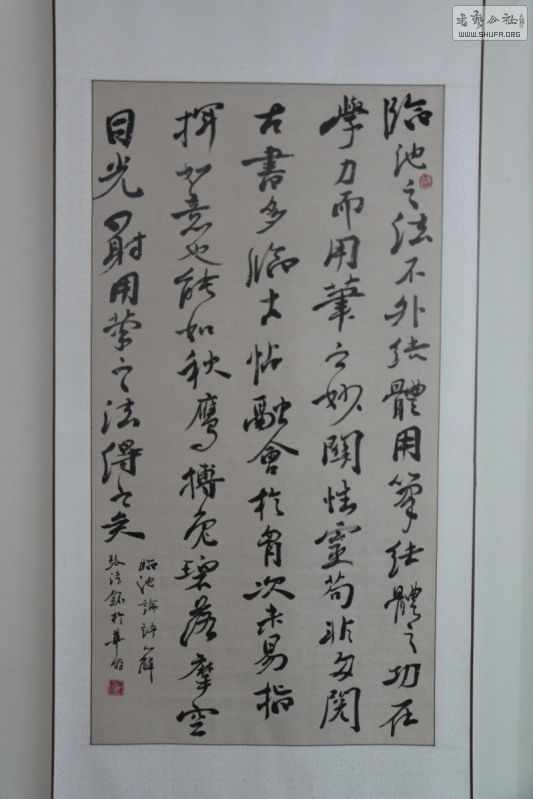 臨池之法不外結體用筆結體之功在
學力而用筆之妙關性靈苟非多閱
古書多臨古帖融會於胷次未易指
揮如意也能如秋鷹搏兔碧落摩空
目光四射用筆之法得之矣
臨池論
於
書藝公社
WWW.SHUFA.ORG